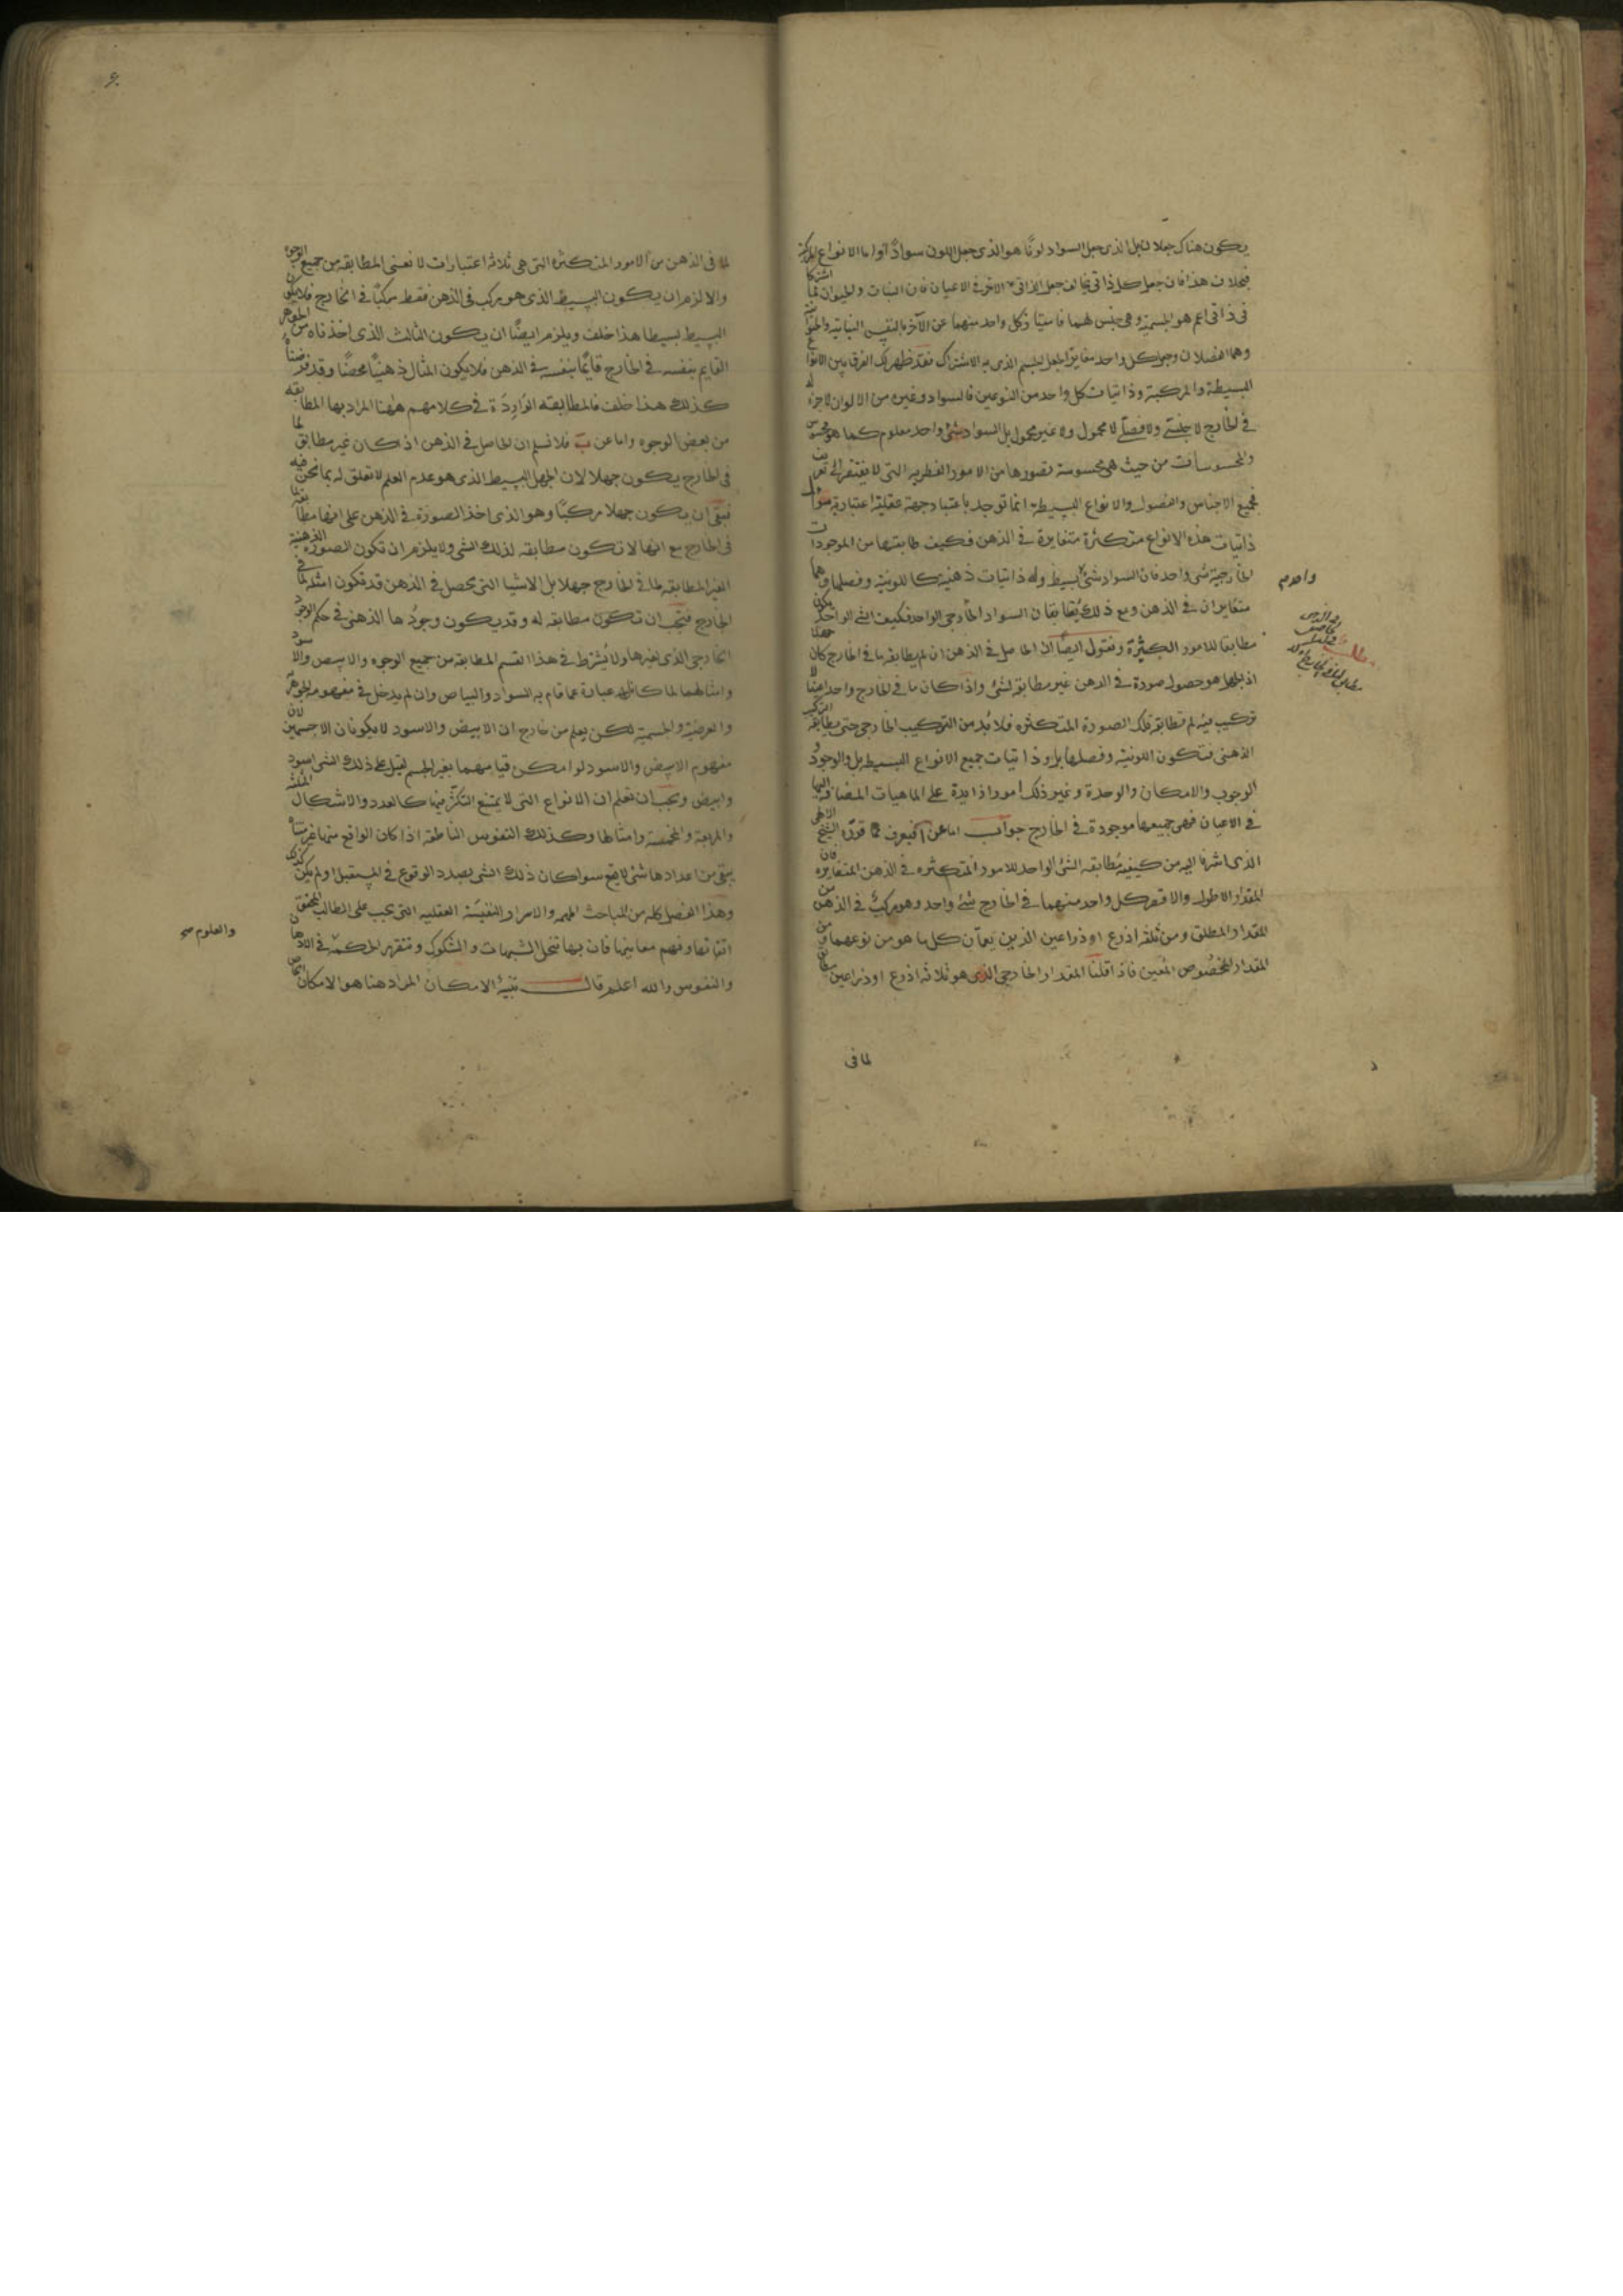 يكون هناك جعلان بل الذى جعل السواد لونًا هو الذى جعل اللون سوادًا واما الانواع المركبة
فبخلاف هذا فان جعل كل ذاتى يخالف جعل الذاتى الآخر فى الاعيان فان النبات والحيوان لما اشتركا
فى ذاتى اعم هو الجسمية وهى جنس لهما فامتياز كل واحد منهما عن الآخر بالنفس النباتية والحيوانية
وهما الفصلان وجعل كل واحد مغاير لجعل الجسم الذى به الاشتراك فقد ظهر لك الفرق بين الانواع
البسيطة والمركبة وذاتيات كل واحد من النوعين فالسواد وغيره من الالوان لا جزء له
فى الخارج لا جنسى ولا فصلى لا محمول ولا غير محمول بل السواد شئ واحد معلوم كما هو محسوس
والمحسوسات من حيث هى محسوسة تصورها من الامور الفطريه التى لا يفتقر الى تعريف
فجميع الاجناس والفصول والانواع البسيطة انما توجد باعتبار جهة عقلية اعتبارية سؤال
ذاتيات هذه الانواع متكثرة متغايرة فى الذهن فكيف طابقتها من الموجودات
الخارجية شئ واحد فان السواد شئ بسيط وله ذاتيات ذهنية كاللونية وفصلها وهما
متغايران فى الذهن ومع ذلك يطابقان السواد الخارجى الواحد فكيف الشئ الواحد يكون
مطابقا للامور الكثيرة ونقول ايضًا ان الحاصل فى الذهن ان لم يطابقه ما فى الخارج كان جهلا
اذ الجهل هو حصول صورة فى الذهن غير مطابقة لشئ واذا كان ما فى الخارج واحدا عينًا لا
تركيب فيه لم تطابقه تلك الصورة المتكثره فلا بد من التركيب الخارجى حتى يطابقه التركيب
الذهنى فتكون اللونية وفصلها بل وذاتيات جميع الانواع البسيطه بل والوجود و
الوجوب والامكان والوحدة وغير ذلك امورا زايدة على الماهيات المضافه اليها
فى الاعيان فهى جميعها موجودة فى الخارج جواب اما عن آ فبعرف مما قرره الشيخ الالهى
الذى اشرنا اليه من كيفيه مُطابقه الشئ الواحد للامور المتكثره فى الذهن المتغايره فان
المقدار الاطول والاقصر كل واحد منهما فى الخارج شئ واحد وهو مركب فى الذهن من
المقدار المطلق ومن ثلثه اذرع او ذراعين الذين يعمان كل ما هو من نوعهما ومن
المقدار المخصُوص المعين فاذا قلنا المقدار الخارجى الذى هو ثلاثه اذرع او ذراعين مطابق
لما فى
واحد م
مطلب
لما فى الذهن من الامور المتكثره التى هى ثلاثه اعتبارات لا نعنى المطابقه من جميع الوجوه
والا لزم ان يكون البسيط الذى هو مركب فى الذهن فقط مركبًا فى الخارج فلا يكون
البسيط بسيطا هذا خلف ويلزم ايضًا ان يكون المثالث الذى اخذناه من الجوهر
القايم بنفسه فى الخارج قايمًا بنفسه فى الذهن فلا يكون المثال ذهنيًا محضًا وقد فرضناه
كذلك هذا خلف فالمطابقه الوَارِدَة فى كلامهم ههنا المراد بها المطابقه
من بعض الوجوه واما عن ب فلا نسلم ان الحاصل فى الذهن اذ كان غير مطابق لما
فى الخارج يكون جهلا لان الجهل البسيط الذى هو عدم العلم لا تعلق له بما نحن فيه
فبقى ان يكون جهلا مركبًا وهو الذى اخذ الصورة فى الذهن على انها مطابقه لما
فى الخارج مع انها لا تكون مطابقه لذلك الشئ ولا يلزم ان تكون الصورة الذهنية
الغير المطابقه لما فى الخارج جهلا بل الاشيا التى يحصل فى الذهن قد تكون امثله لما فى
الخارج فيجب ان تكون مطابقه له وقد يكون وجودُها الذهنى فى حكم الوجود
الخارجى الذى لغيرها ولا يُشترط فى هذا القسم المطابقه من جميع الوجوه والابيض والاسود
وامثالهما لما كانا عبارة عما قام به السواد والبياض وان لم يدخل فى مفهومه الجوهرية
والعرضية والجسمية لكن يعلم من خارج ان الابيض والاسود لا يكونان الا جسمين لان
مفهوم الابيض والاسود لو امكن قيامهما بغير الجسم لقيل على ذلك الشئ اسود
وابيض ويجب ان تعلم ان الانواع التى لا يمتنع التكثر فيها كالعدد والاشكال المثلثه
والمربعة والمخمسة وامثالها وكذلك النفوس الناطقه اذا كان الواقع منها غير متناه
يبقى من اعدادها شئ لا يقع سوا كان ذلك الشئ بصدد الوقوع فى المستقبل او لم يكن كذلك
وهذا الفصل كله من المباحث المهمه والاسرار النفيسَة العقليه التى يجب على الطالب المحقق
اتقانها وفهم معانيها فان بها تنحل الشبهات والشكوك وتتقرر الحكمة فى الاذهان
والنفوس والله اعلم قال تنبيهٌ الامكان المراد هنا هو الامكان الخاص
والعلوم صح